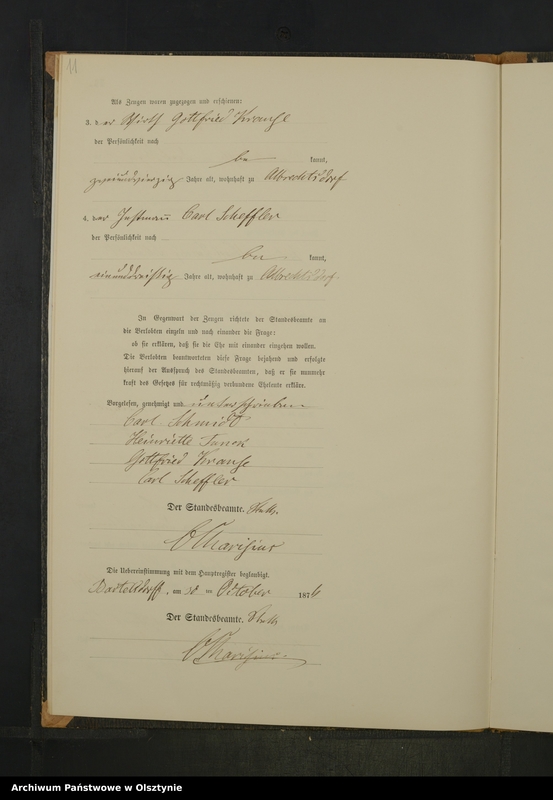 11
Als Zeugen waren zugezogen und erschienen:
3. der Wirth Gottfried Krause
der Persönlichkeit nach
be kannt,
zweiundvierzig Jahre alt, wohnhaft zu Albrechtsdorf
4. der Instmann Carl Scheffler
der Persönlichkeit nach
be kannt,
einunddreißig Jahre alt, wohnhaft zu Albrechtsdorf
In Gegenwart der Zeugen richtete der Standesbeamte an
die Verlobten einzeln und nach einander die Frage:
ob sie erklären, daß sie die Ehe mit einander eingehen wollen.
Die Verlobten beantworteten diese Frage bejahend und erfolgte
hierauf der Ausspruch des Standesbeamten, daß er sie nunmehr
kraft des Gesetzes für rechtmäßig verbundene Eheleute erkläre.
Vorgelesen, genehmigt und unterschrieben
Carl Schmidt
Heinriette
Gottfried Krause
Carl Scheffler
Der Standesbeamte.
Die Uebereinstimmung mit dem Hauptregister beglaubigt.
am October 1876
Der Standesbeamte.
Archiwum Państwowe w Olsztynie